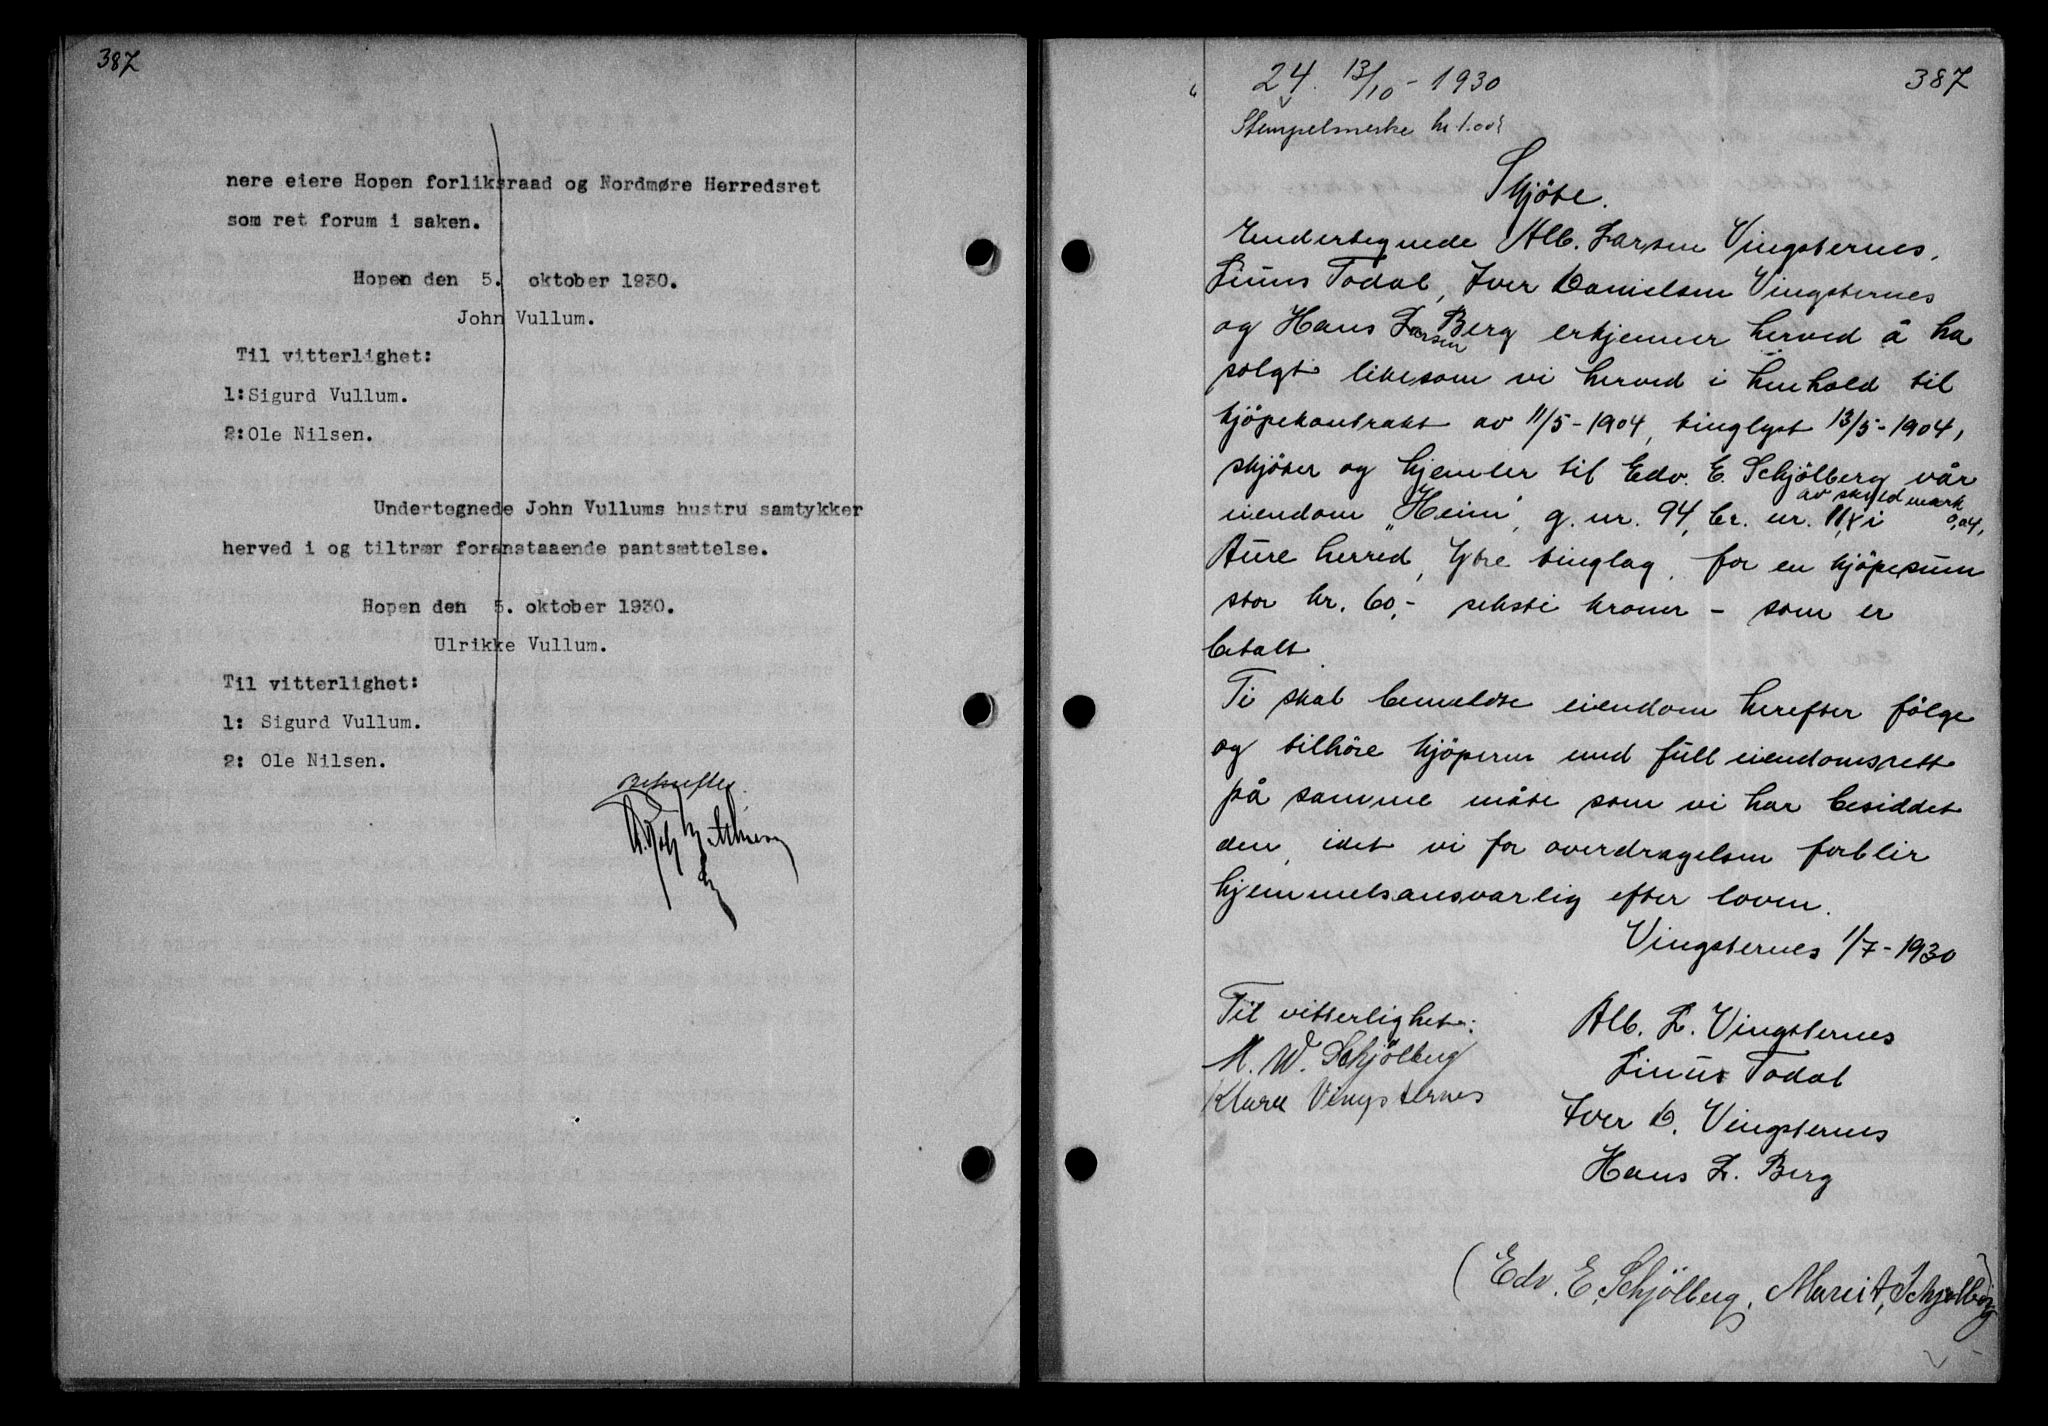 387
nere eiere Hopen forliksraad og Nordmøre Herredsret
som ret forum i saken.
Hopen den 5. oktober 1930.
John Vullum.
Til vitterlighet:
1:Sigurd Vullum.
2:Ole Nilsen.
Undertegnede John Vullums hustru samtykker
herved i og tiltrær foranstaaende pantsættelse.
Hopen den 5. oktober 1930.
Ulrikke Vullum.
Til vitterlighet:
1: Sigurd Vullum.
2: Ole Nilsen.
Bekreftes
387
24. 13/10 - 1930
Stempelmerke kr 1.00
Skjöte.
Undertegnede Alb. Larsen Vingsternes,
Linus Todal, Iver Danielsen Vingsternes
og Hans Larsen Berg erkjenner herved å ha
solgt likesom vi herved i henhold til
kjöpekontrakt av 11/5 - 1904, tinglyst 13/5 - 1904,
skjöter og hjemler til Edv. E. Schjölberg vår
eiendom "Heim", g. nr. 94, br. nr. 11, av skyld mark 0,04, i
Aure herred, Ytre tinglag, for en kjöpesum
stor kr. 60,- seksti kroner - som er
betalt.
Ti skal bemeldte eiendom herefter fölge
og tilhöre kjöperen med full eiendomsrett
på samme måte som vi har besiddet
den, idet vi for overdragelsen forblir
hjemmelsansvarlig efter loven.
Vingsternes 1/7 - 1930
Til vitterlighet:
M. W. Schjölberg
Klara Vingsternes
Alb. L. Vingsternes
Linus Todal
Iver D. Vingsternes
Hans L. Berg
(Edv. E. Schjölberg, Marit A, Schjølberg)